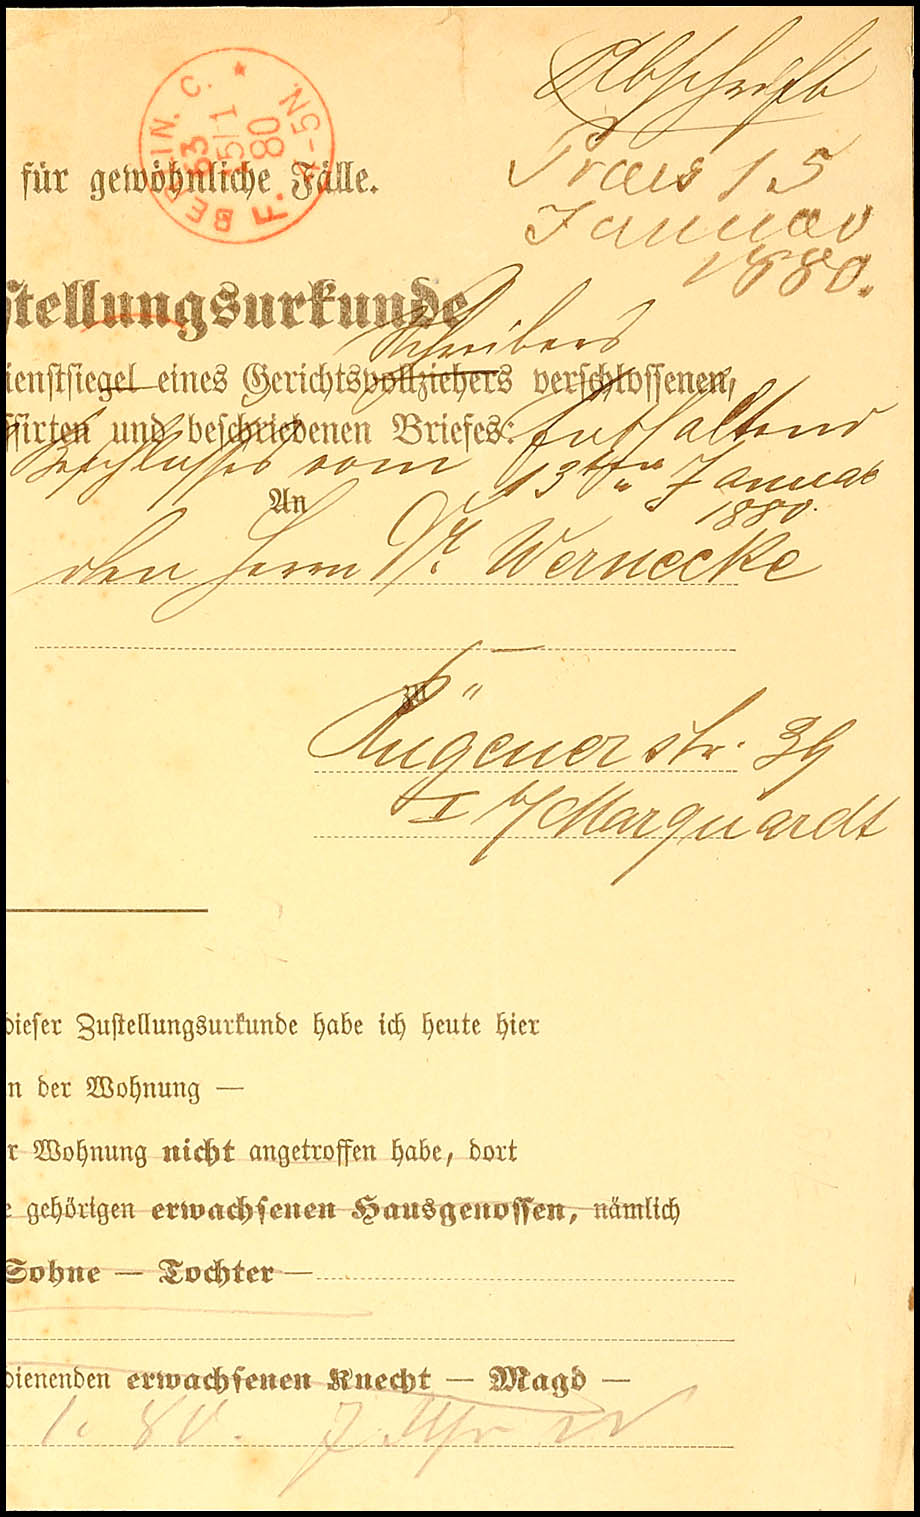 Abschrift
BERLIN. C. *
63
15/1
80
F. 4-5N.
für gewöhnliche Fälle.
Praes 15
Januar
1880.
stellungsurkunde
Schreibers
ienstsiegel eines Gerichtsvollziehers verschlossenen,
ssirten und beschriebenen Briefes: Enthaltend
Beschlusses vom 13ten Januar
1880.
An
den Herrn Dr. Wernecke
zu
Rügenerstr. 39
I b/ Marquardt
dieser Zustellungsurkunde habe ich heute hier
n der Wohnung —
r Wohnung nicht angetroffen habe, dort
e gehörigen erwachsenen Hausgenossen, nämlich
Sohne — Tochter —
dienenden erwachsenen Knecht — Magd —
1. 80. 7 Uhr N